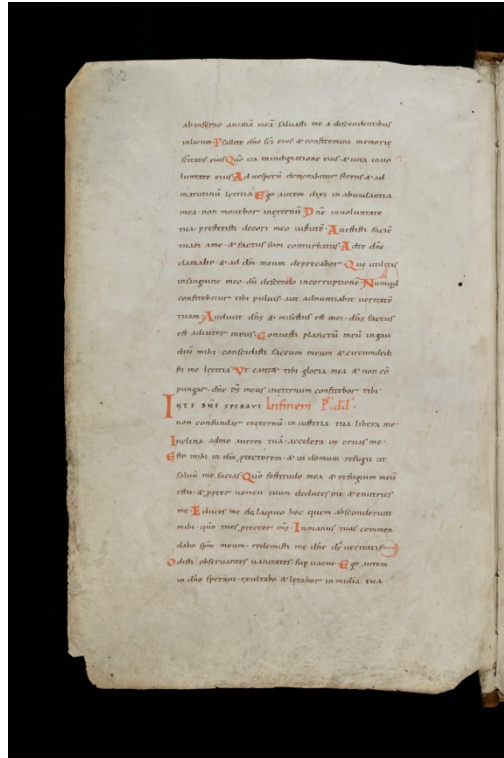 ab inferno animā meā saluasti me a descendentibus
in lacum. Psallite dño scī eius & confitemini memorię
scītatis eius Quō ira in indignatione eius & uita in uo
luntate eius Ad uesperū demorabitur fletus & ad
matutinū lętitia Ego autem dixi in abundantia
mea non mouebor inęternū Dñe in uoluntate
tua prestitisti decori meo uirtutē Auertisti faciē
tuam a me & factus sum conturbatus Ad te dñe
clamabo & ad dm meum deprecabor Que utilitas
in sanguine meo dū descendo in corruptione Numqd
confitebitur tibi puluis aut adnuntiabit ueritatē
tuam Audiuit dns & misertus est mei dns factus
est adiutor meus Conuertisti planctū meū in gau
diū mihi conscidisti saccum meum & circumdedi
sti me lętitia Ut cant& tibi gloria mea & non cō
pungar dñe ds meus inęternum confitebor tibi
IN TE DNE SPERAVI In finem Ps dd
non confundar inęternū in iustitia tua libera me
Inclina ad me aurem tuā accelera ut eruas me
Esto mihi in dm ꝓtectorem & in domum refugii ut
saluū me facias Quō fortitudo mea & refugium meū
es tu & ꝓpter nomen tuum deduces me & enutries
me Educes me de laqueo hoc quem absconderunt
mihi quō tu es ꝓtector ms In manus tuas commen
dabo spm meum redemisti me dñe ds ueritatis
Odisti obseruantes uanitates sup uacue Ego autem
in dño speraui exultabo & lętabor in mīdia tua